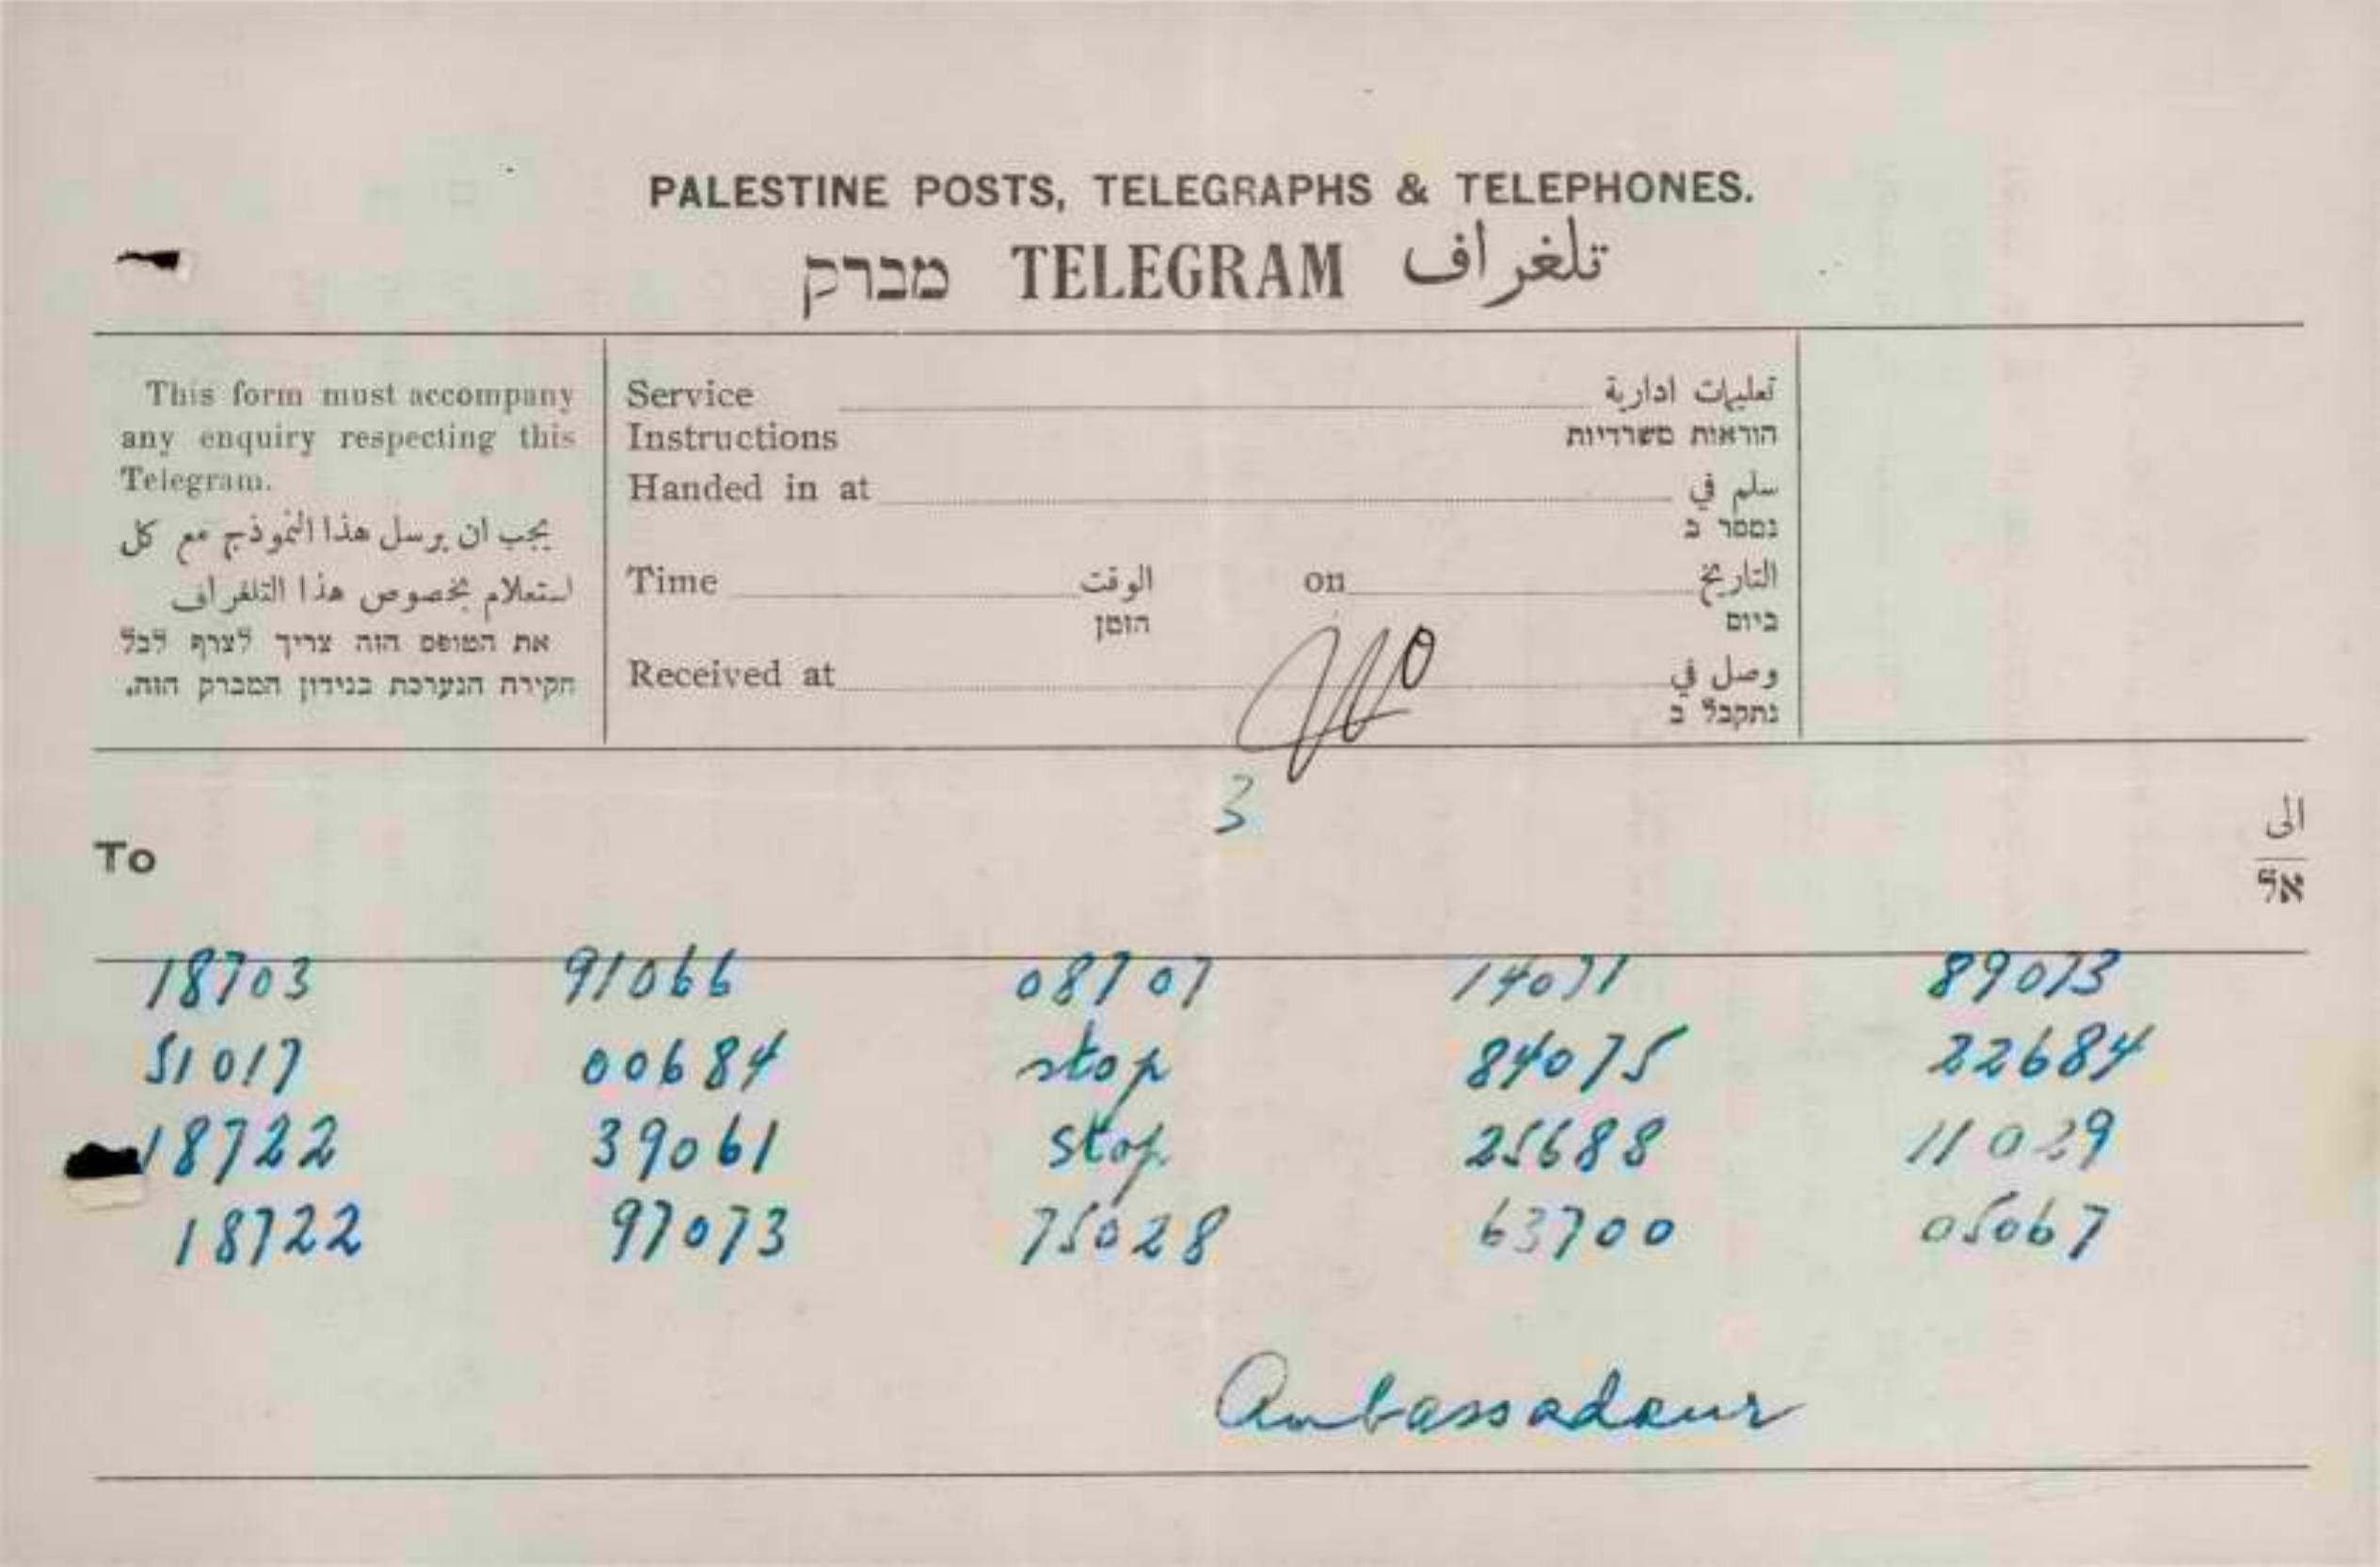 PALESTINE POSTS, TELEGRAPHS & TELEPHONES.
מברק TELEGRAM تلغراف
This form must accompany
any enquiry respecting this
Telegram.
يجب ان يرسل هذا النموذج مع كل
استعلام بخصوص هذا التلغراف
את הטופס הזה צריך לצרף לכל
חקירה הנערכת בנידון המברק הזה.
Service تعليمات ادارية
Instructions הוראות משרדיות
Handed in at سلم في
נמסר ב
Time الوقت on التاريخ
הזמן ביום
Received at وصل في
נתקבל ב
3
To الى
אל
18703 91066 08707 14071 89073
51017 00684 stop 84075 22684
18722 39061 stop 25688 11029
18722 97073 75028 63700 05067
Ambassadeur